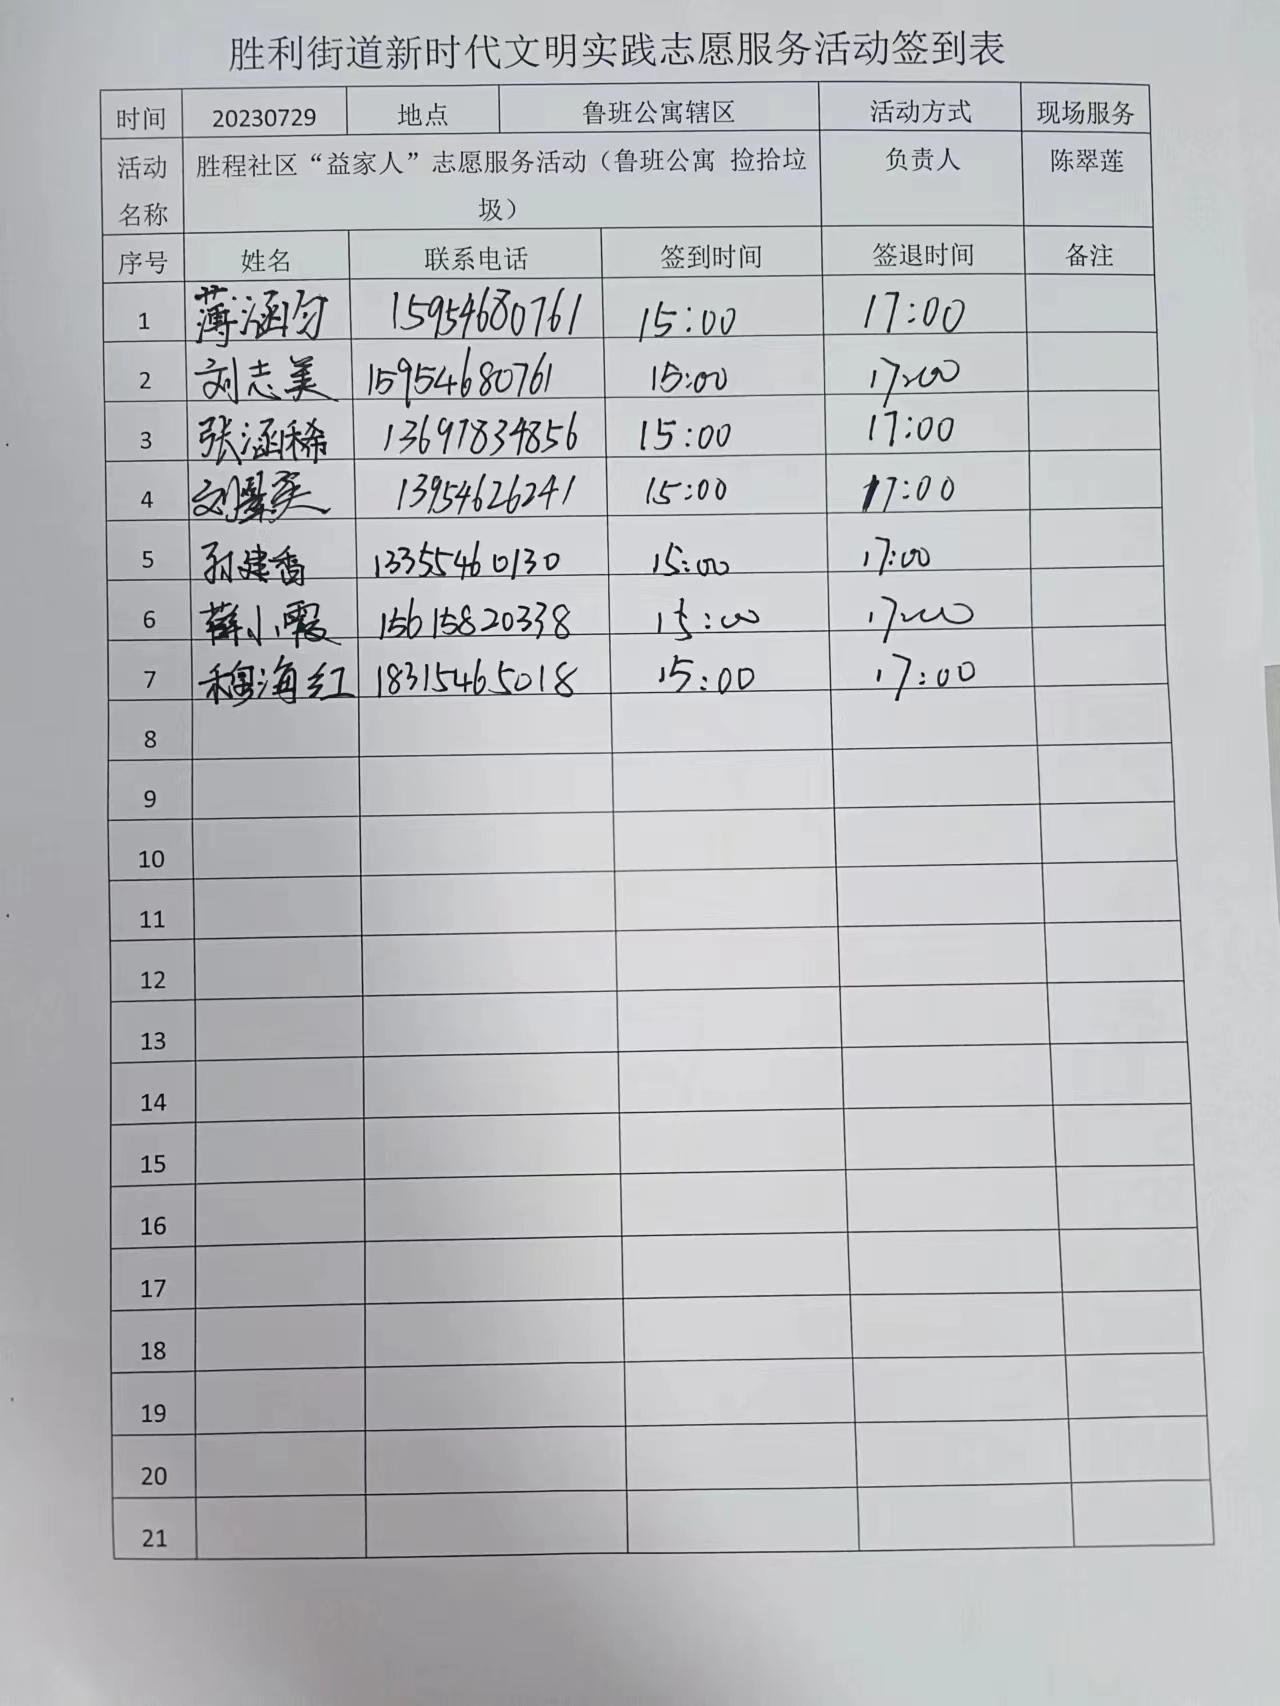 胜利街道新时代文明实践志愿服务活动签到表
时间 20230729 地点 鲁班公寓辖区 活动方式 现场服务
活动名称 胜程社区“益家人”志愿服务活动（鲁班公寓 捡拾垃圾） 负责人 陈翠莲
序号 姓名 联系电话 签到时间 签退时间 备注
1 薄涵匀 15954680761 15:00 17:00
2 刘志美 15954680761 15:00 17:00
3 张涵稀 13697834856 15:00 17:00
4 刘 英 13954626241 15:00 17:00
5 孙建香 13355460130 15:00 17:00
6 薛小霞 15615820338 15:00 17:00
7 穆海红 18315465018 15:00 17:00
8
9
10
11
12
13
14
15
16
17
18
19
20
21